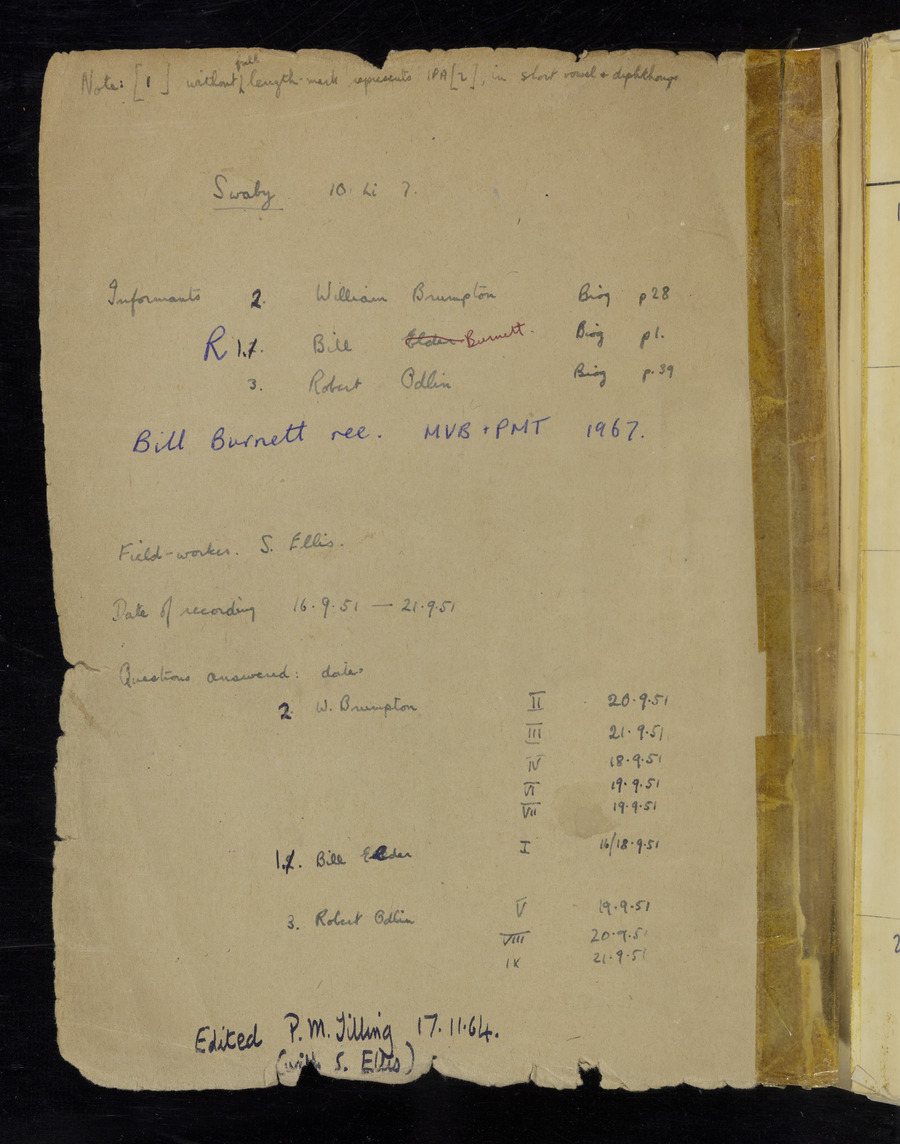 Note: [ı] without full length-mark represents IPA [ɪ], in short vowel & diphthongs
Swaby 10. Li 7.
Informants 2. William Brumpton Biog p 28
R 1. Bill Elder Burnett. Biog p 1.
3. Robert Odlin Biog p. 39
Bill Burnett rec. MVB + PMT 1967.
Field-worker. S. Ellis.
Date of recording 16.9.51 — 21.9.51
Questions answered: dates
2. W. Brumpton II 20.9.51
III 21.9.51
IV 18.9.51
VI 19.9.51
VII 19.9.51
1. Bill Elder I 16/18.9.51
3. Robert Odlin V 19.9.51
VIII 20.9.51
IX 21.9.51
Edited P.M. Tilling 17.11.64.
(with S. Ellis)